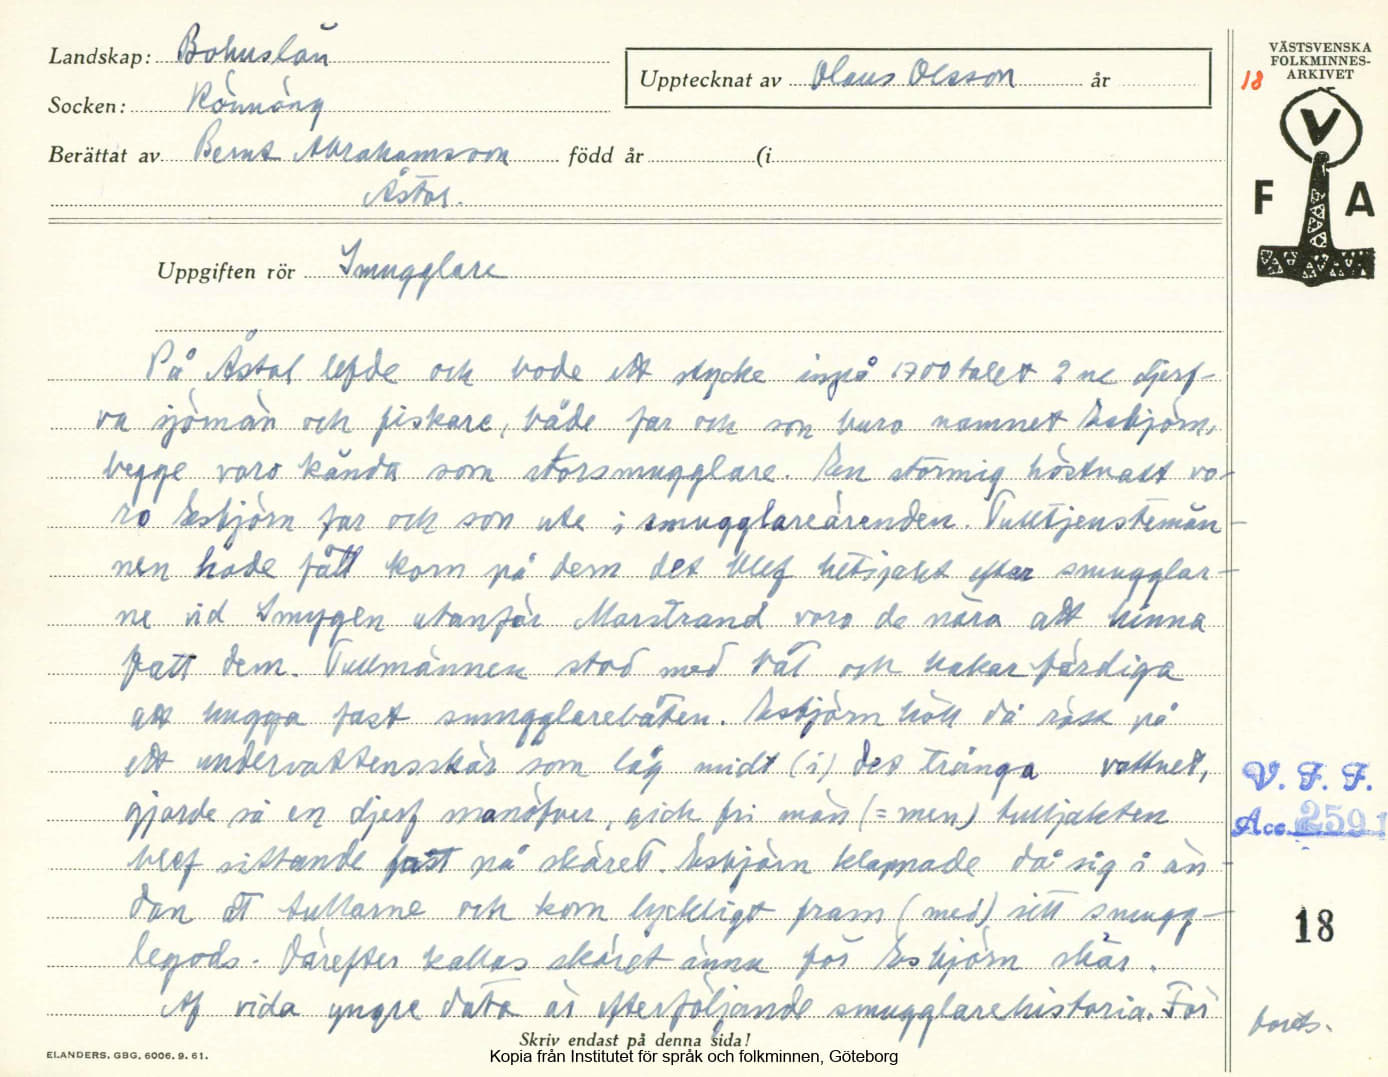 Landskap: Bohuslän
VÄSTSVENSKA
FOLKMINNES-
ARKIVET
Upptecknat av Olaus Olsson år
18
Socken: Rönnäng
Berättat av Bernt Abrahamsson född år (i
Åstol.
V
F A
Uppgiften rör Smugglare
På Åstol lefde och bode ett stycke inpå 1700 talet 2 ne djerf-
va sjömän och fiskare, både far och son buro namnet Esbjörn,
begge voro kända som storsmugglare. En stormig höstnatt vo-
ro Esbjörn far och son ute i smugglareärenden. Tulltjenstemän-
nen hade fått korn på dem det blef hetsjakt efter smugglar-
ne vid Smygen utanför Marstrand voro de nära att hinna
fatt dem. Tullmännen stod med båt och hakar färdiga
att hugga fast smugglarebåten. Esbjörn höll då rask på
ett undervattensskär som låg midt (i) det trånga vattnet,
gjorde så en djerf manöfver, gick fri män (= men) tulljakten
blef sittande fast på skäret. Esbjörn klappnade då sig i än-
dan åt tullarne och kom lyckligt fram (med) sitt smugg-
legods. Därefter kallas skäret ännu för Esbjörn skär.
Af vida yngre data är efterföljande smugglarehistoria. För
V. F. F.
Acc. 2591
18
forts.
Skriv endast på denna sida!
ELANDERS, GBG, 6006. 9. 61.
Kopia från Institutet för språk och folkminnen, Göteborg